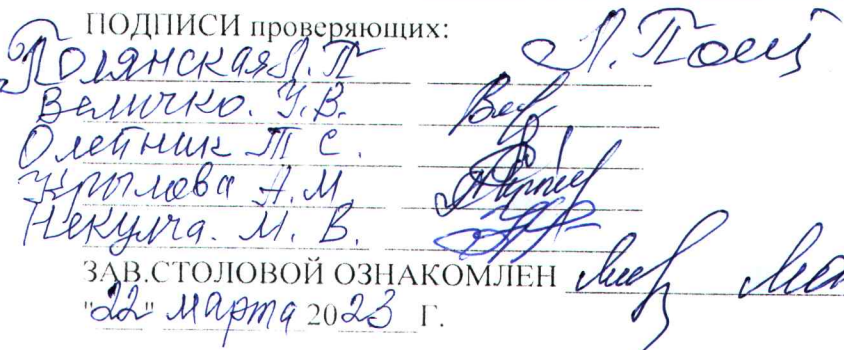 ПОДПИСИ проверяющих:
Полянская Л.П Л. Пол
Величко. У.В.
Олейник Т С.
Крылова А.М
Некулча. М. В.
ЗАВ.СТОЛОВОЙ ОЗНАКОМЛЕН
"22" марта 2023 Г.